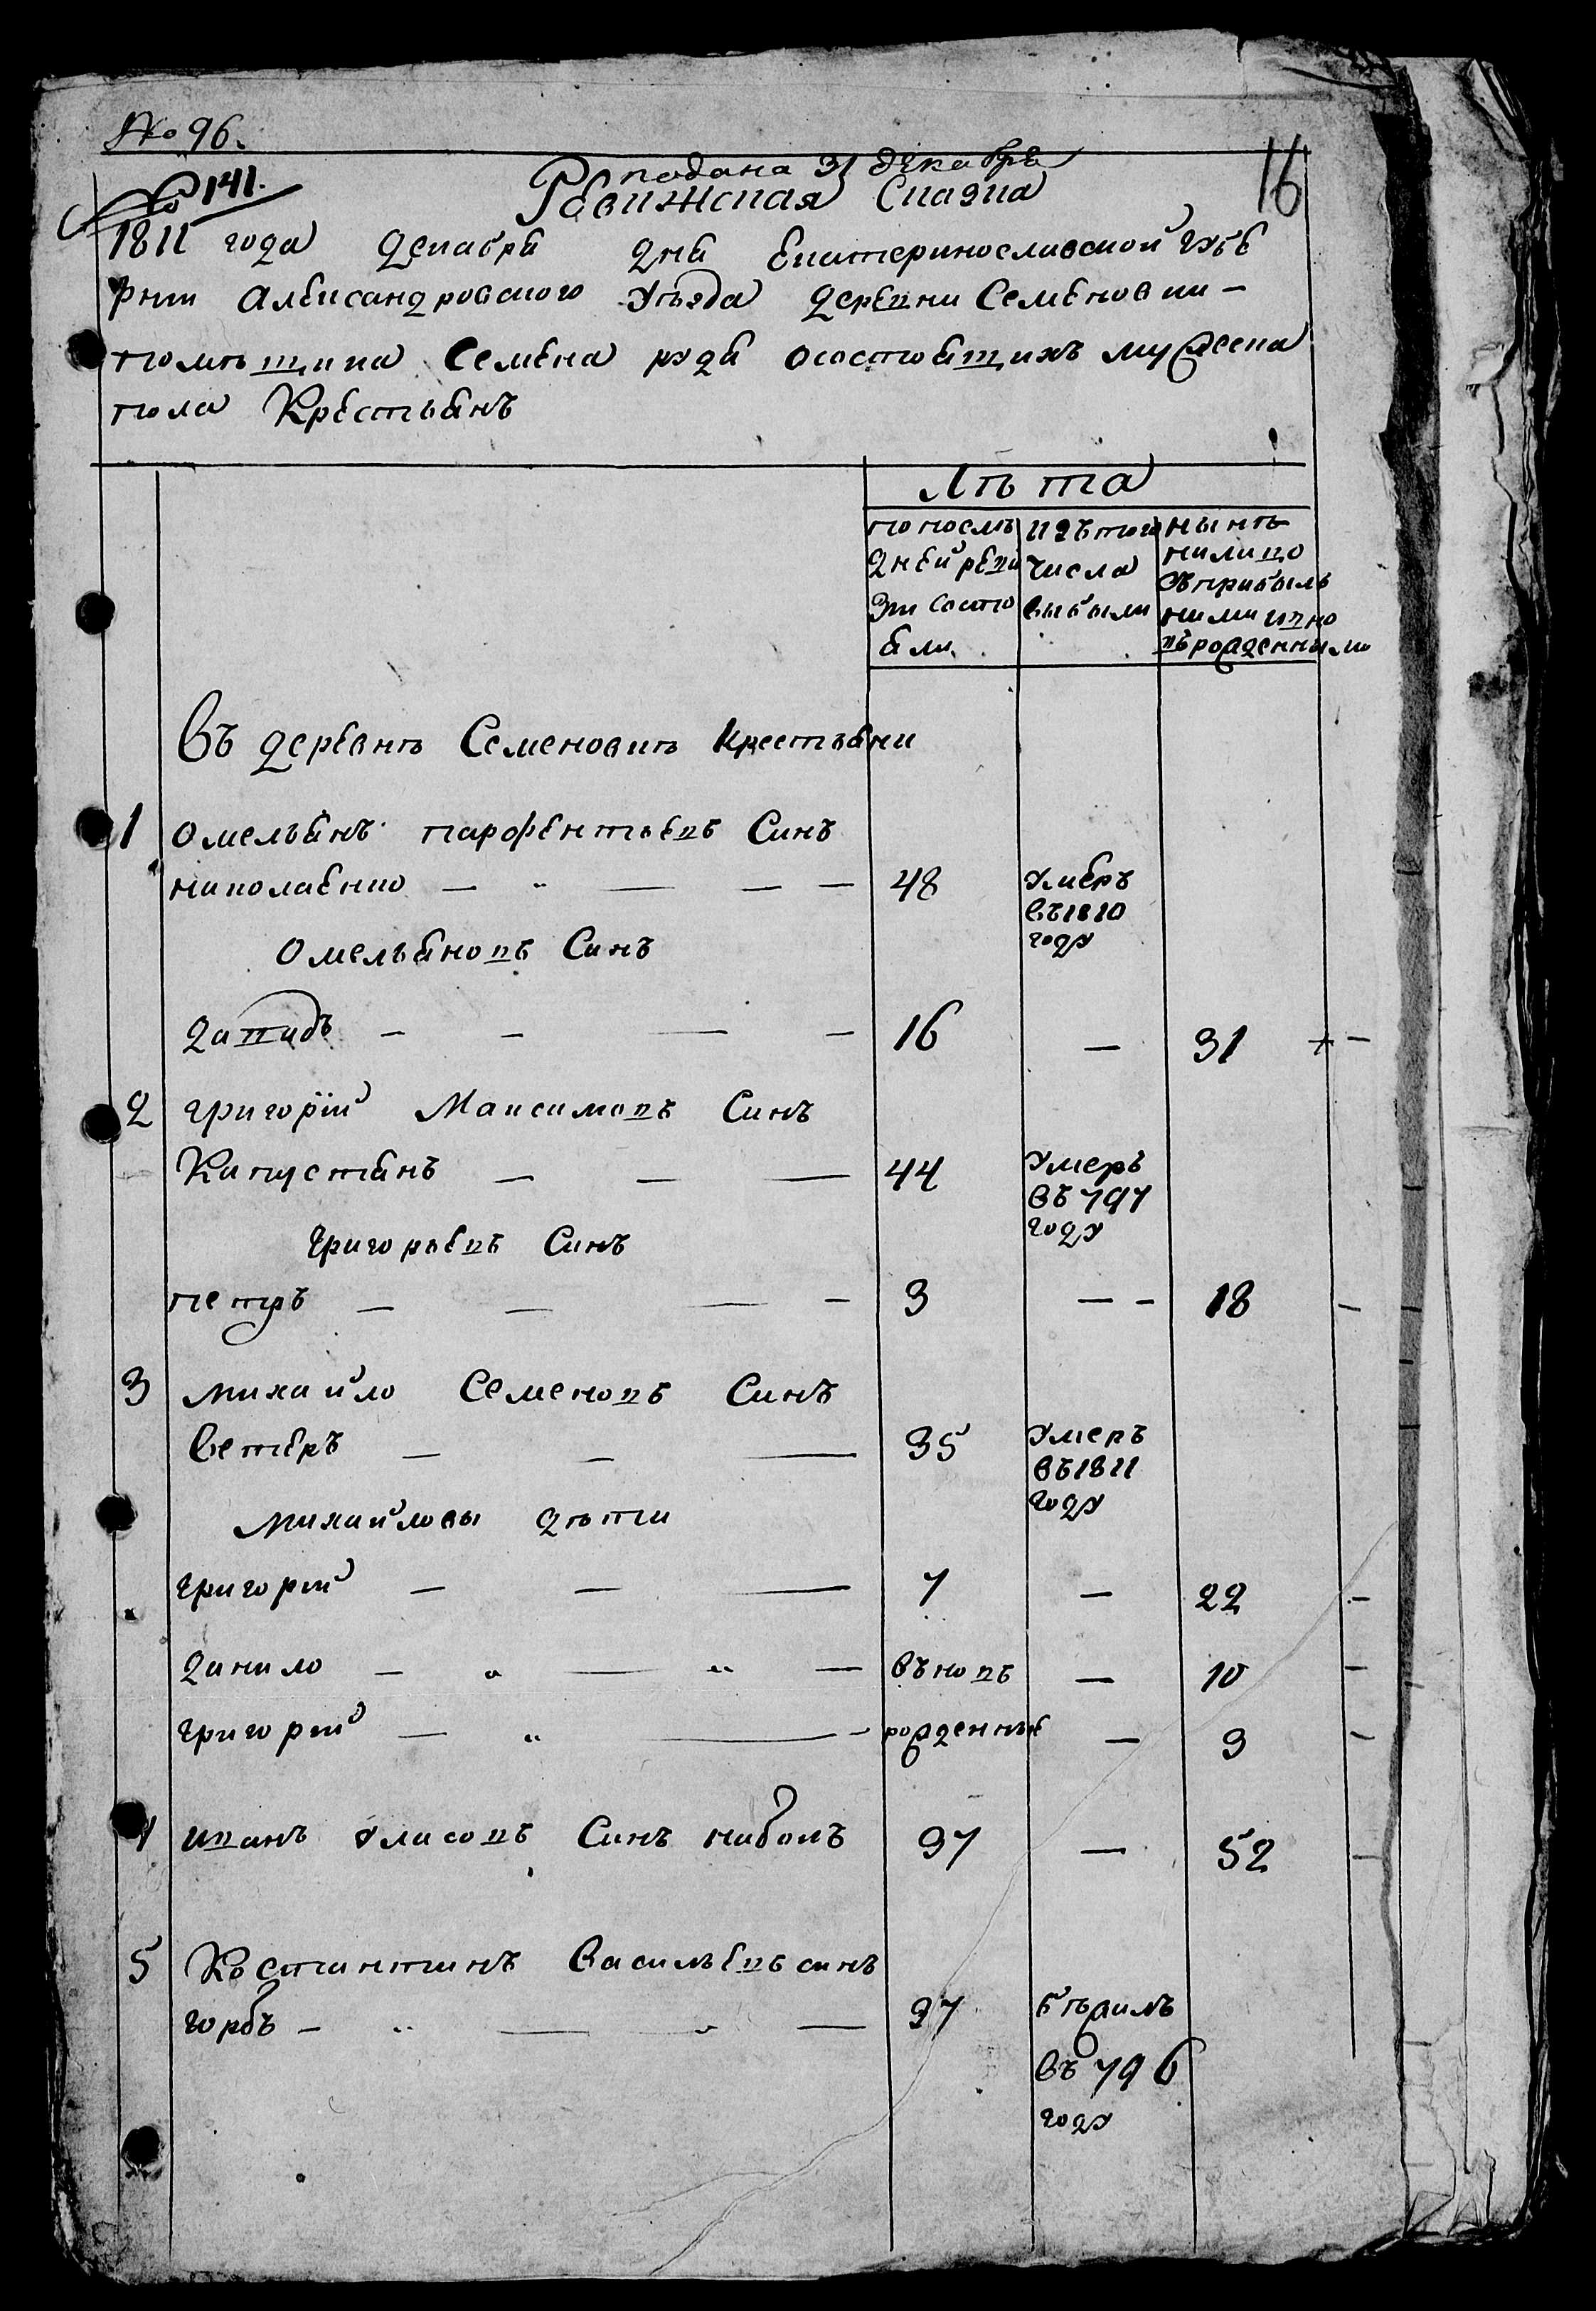 № 96.
подана 31 декабря
16
№ 141.
Ревижская Сказка
1811 года Декабря дня Екатеринославской губе
рнии Александровского уѣзда деревни Семеновки -
помѣщика Семена осостоящихъ мужеска
пола Крестьянъ
Лѣта
попослѣ
дней реви
зіи состо
яли
изътого
числа
выбыли
нынѣ
налицо
съприбыль
ними ивно
въ рожденными
Въ деревнѣ Семеновкѣ крестьяни
1 Омельянъ парфентьевъ Синъ
николаенко — 48 умеръ
въ 1810
году
Омельяновъ Синъ
Давидъ — 16 — 31 + -
2 григорій Максимовъ Синъ
Капустянъ — 44 умеръ
въ 797
году
григорьевъ Синъ
петръ — 3 — - 18 -
3 михайло Семеновъ Синъ
Ветеръ — 35 умеръ
въ 1811
году
михайловы дѣти
григорій — 7 — 22 -
данило — вновъ — 10 -
григорій — рожденные — 9 -
4 иванъ уласовъ Синъ 37 — 52 —
5 Костинтинъ Васильевъ синъ
горбъ — 37 бѣжилъ
въ 796
году